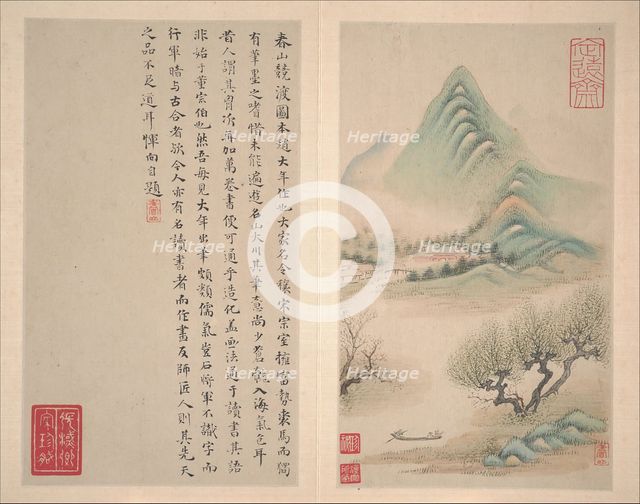 春山競渡圖本趙大年作也大家名令穰宋宗室擁富勢裘馬而獨
有筆墨之嗜惜未能遍遊名山大川其筆意尚少蒼龍入海氣色耳
昔人謂其胷次再加萬卷書便可通乎造化蓋画法通于讀書其語
非始于董宗伯也然吾每見大年出筆頗類儒氣豈右將軍不識字而
行軍暗与古合者歟今人亦有名讀書者而作畫反師匠人則其先天
之品不足道耳惲向自題
Heritage Heritage
Heritage Heritage Heritage
Heritage Heritage